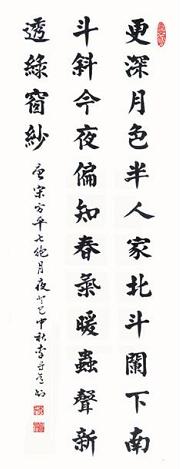 更深月色半人家北斗闌下南
斗斜今夜偏知春氣暖蟲聲新
透綠窗紗
唐宋方平七絕月夜 中秋李